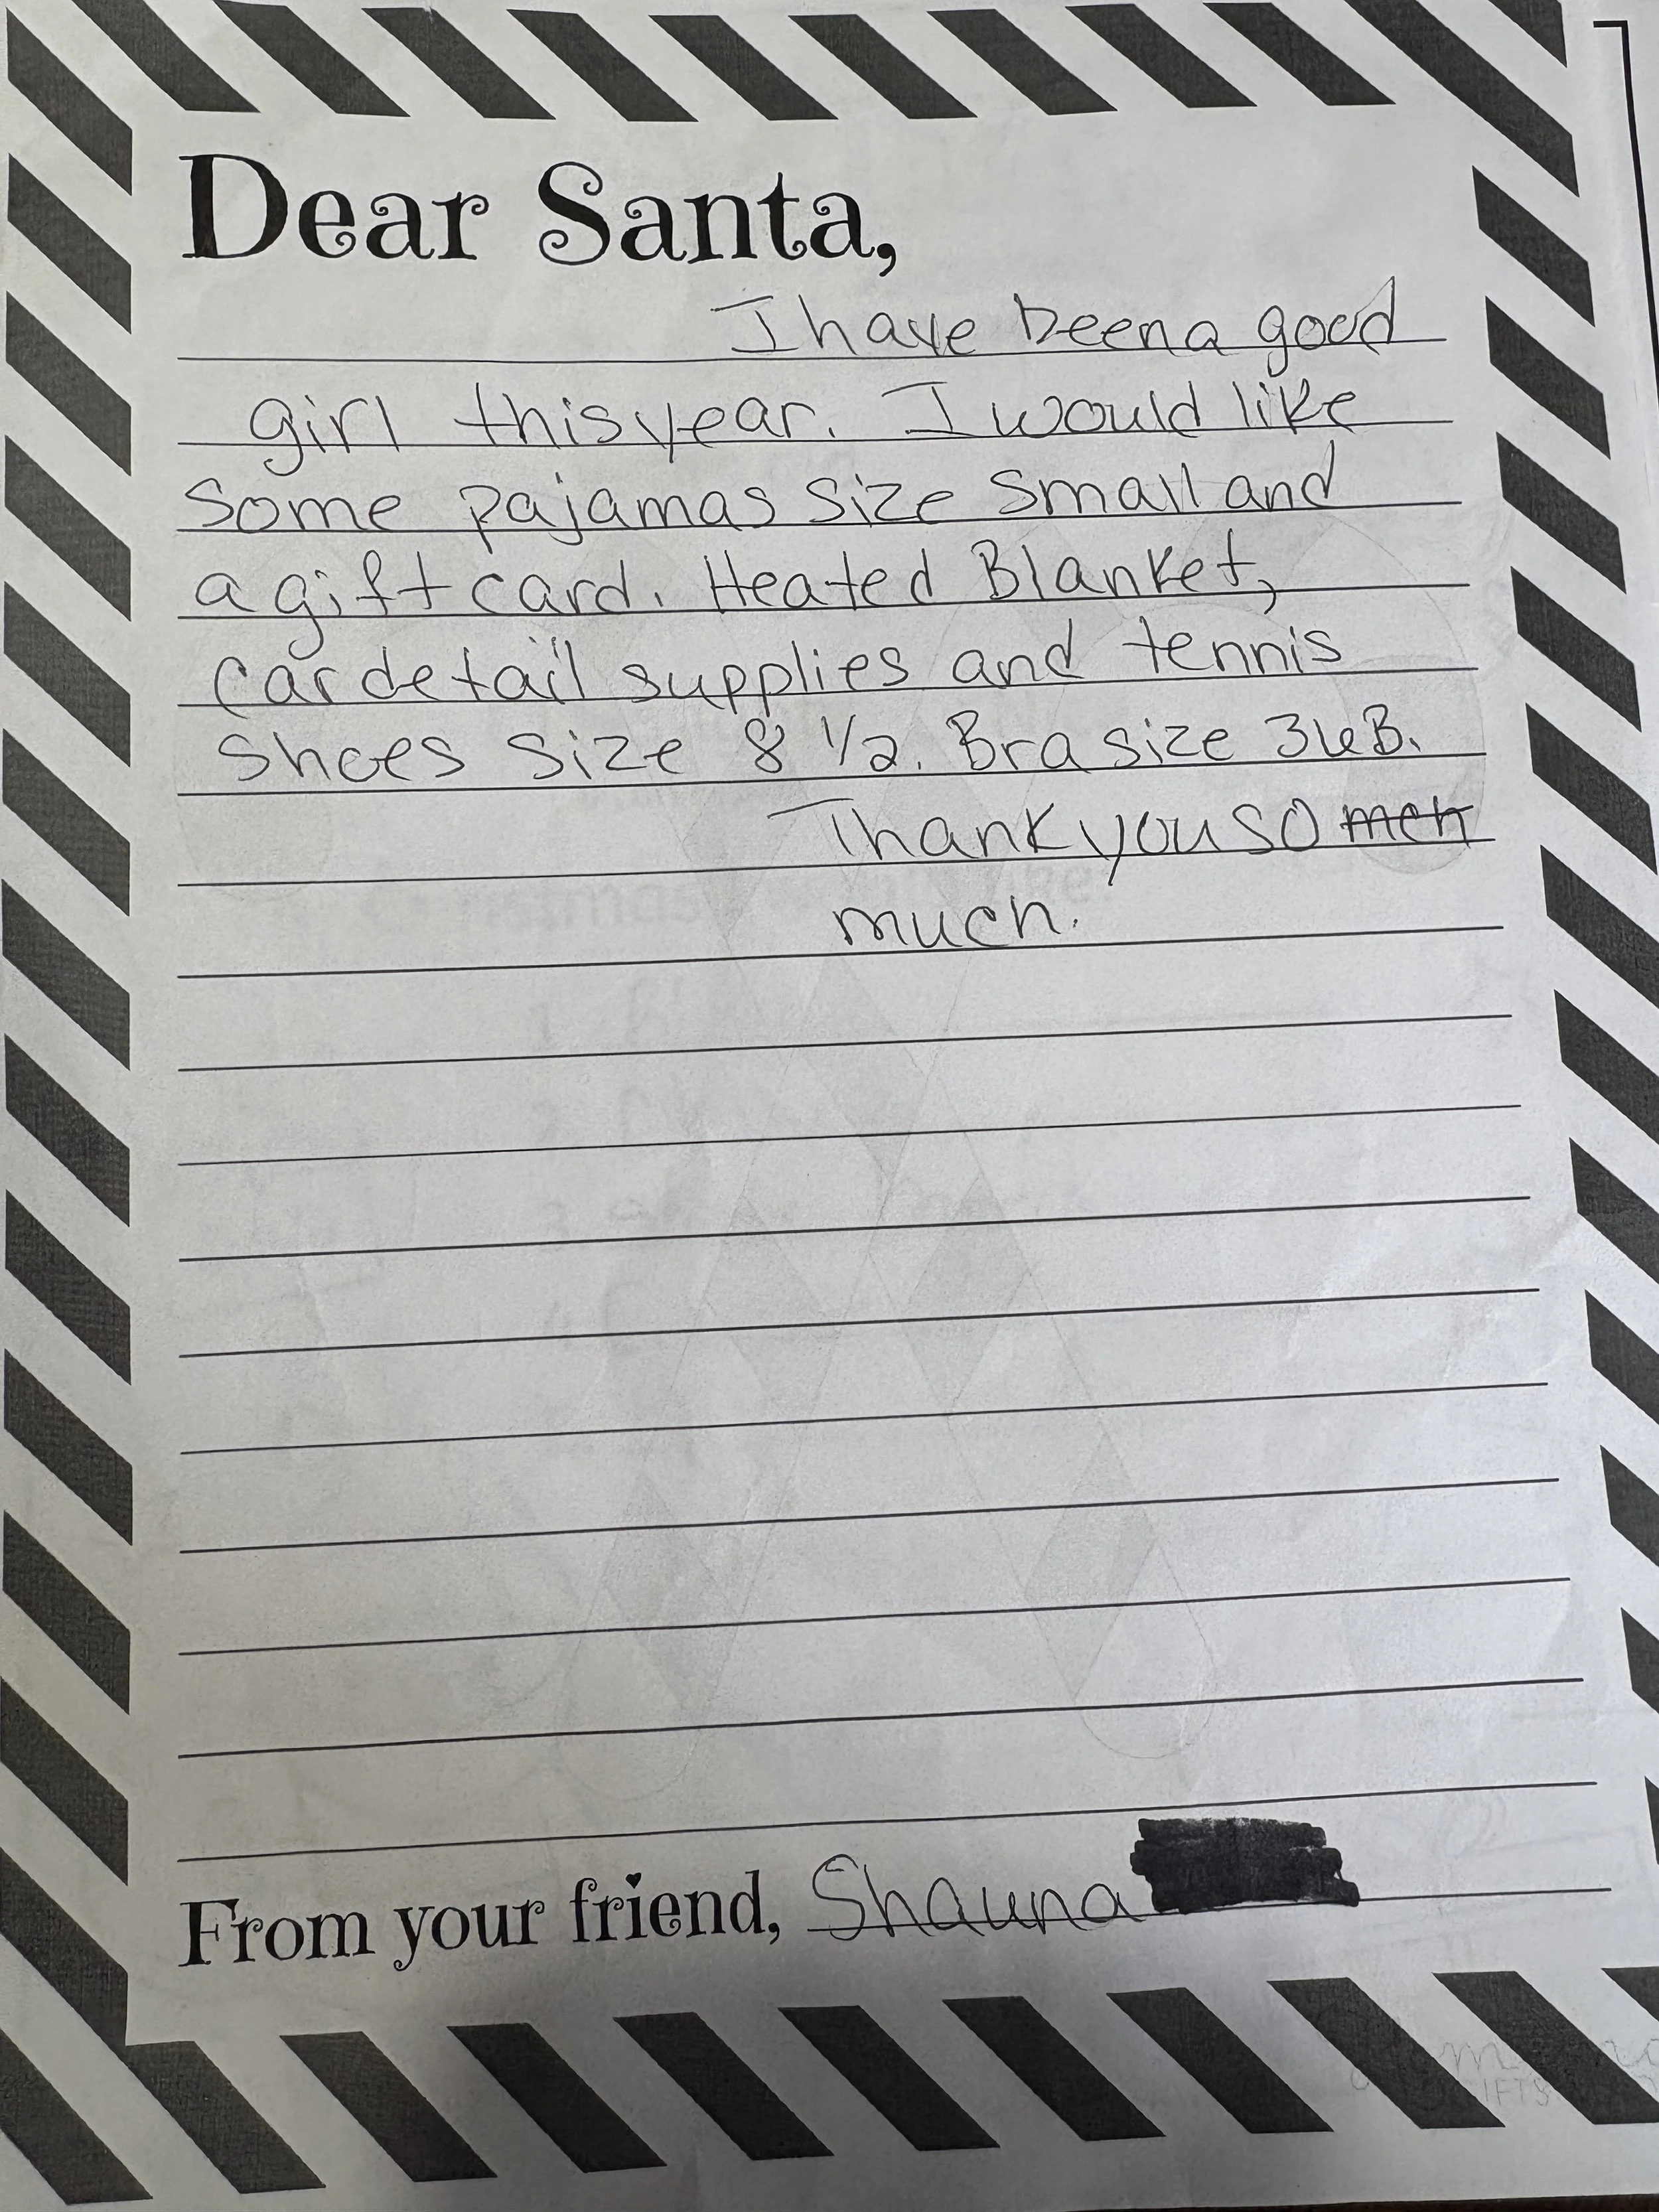 Dear Santa,
I have been a good
girl this year. I would like
some pajamas size small and
a gift card. Heated Blanket,
car detail supplies and tennis
shoes size 8 1/2. Bra size 36B.
Thank you so mch
much.
From your friend, Shauna